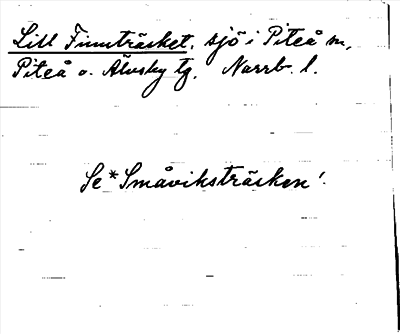 Lill Finnträsket, sjö i Piteå m,
Piteå o. Älvsby tg, Norrb. l.
Se *Småviksträsken!